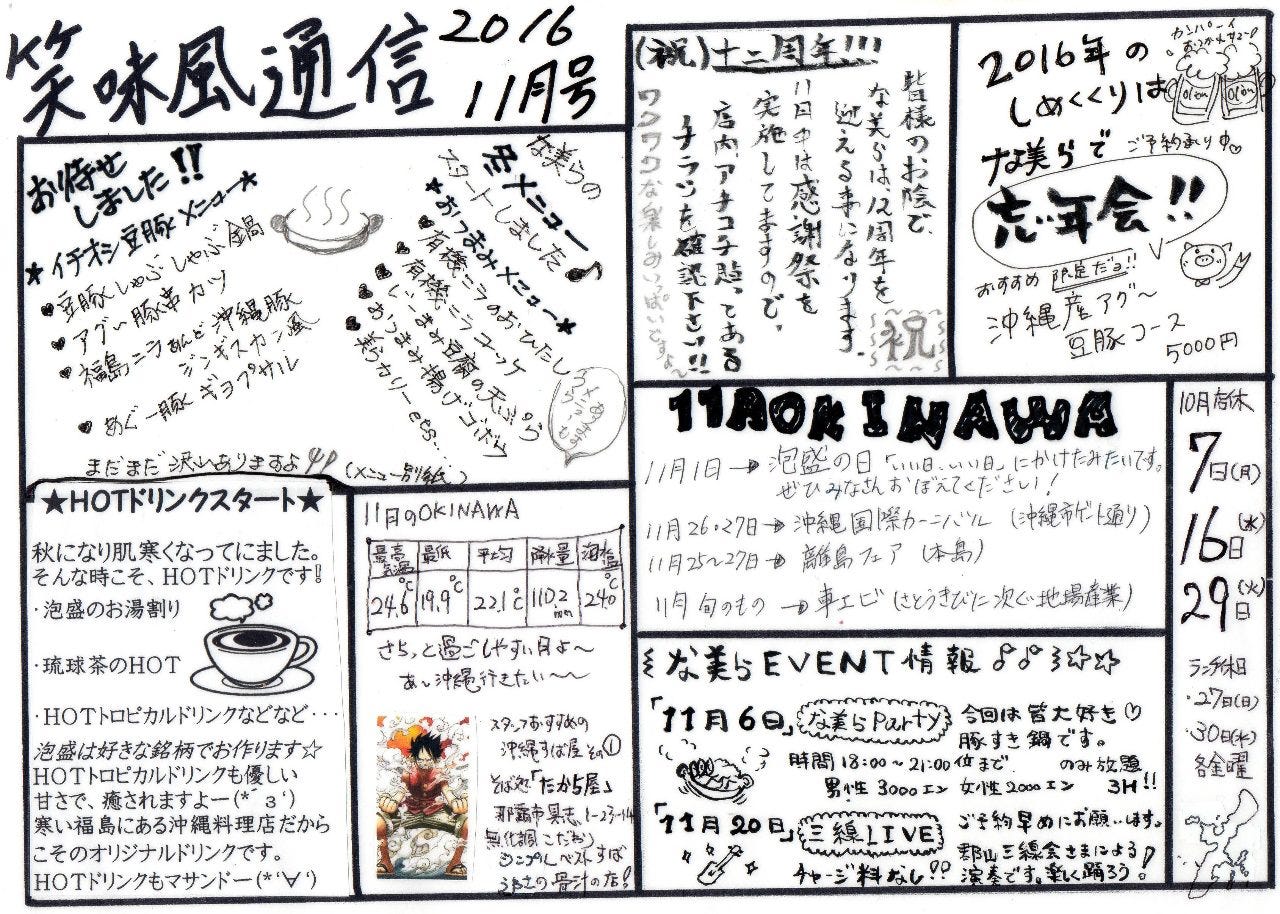 笑味風通信
2016
11月号
お待せ
しました!!
★イチオシ豆豚メニュー★
豆豚しゃぶしゃぶ鍋
アグー豚串カツ
福島ニラあんど沖縄豚
ジンギスカン風
めぐー豚ギョプサル
まだまだ沢山ありますよ
(メニュー別紙)
な美らの
冬メニュー
スタートしました♪
★おつまみメニュー★
有機ニラのおひたし
有機ニラコロッケ
いーまみ豆腐の天ぷら
おつまみ揚げゴボウ
美らカリー etc…
(祝)十二周年!!!
皆様のお陰で、
な美らは、12周年を
迎える事になります。
11月中は感謝祭を
実施してますので、
店内アチコチ貼ってある
チラシを確認下さい!!
ワクワクな楽しみいっぱいですよ~
祝
カンパーイ
おつかれサマー
Olon
Olon
2016年の
しめくくりは
な美らで
ご予約承り中♡
忘年会!!
おすすめ 限定だョ!!
沖縄産アグ~
豆豚コース
5000円
11月OKINAWA
11月1日→泡盛の日「いい日、いい日」にかけたみたいです。
ぜひみなさんおぼえてください!
11月26・27日→沖縄国際カーニバル (沖縄市ゲート通り)
11月25~27日→離島フェア(本島)
11月 旬のもの →車エビ(さとうきびに次ぐ地場産業)
10月店休
7日(月)
16日(水)
29日(火)
ランチ休日
・27日(日)
・30日(水)
各金曜
★HOTドリンクスタート★
秋になり肌寒くなってにました。
そんな時こそ、HOTドリンクです!
・泡盛のお湯割り
・琉球茶のHOT
・HOTトロピカルドリンクなどなど・・・
泡盛は好きな銘柄でお作ります☆
HOTトロピカルドリンクも優しい
甘さで、癒されますよー(*´з‘)
寒い福島にある沖縄料理店だから
こそのオリジナルドリンクです。
HOTドリンクもマサンドー(*‘∀‘)
11月のOKINAWA
最高気温 最低 平均 降水量 海水温
24.6℃ 19.9℃ 22.1℃ 110.2mm 24.0℃
さらっと過ごしやすい月よ~
あ~沖縄行きたい~~
スタッフおすすめの
沖縄すば屋 その①
そば処「たから屋」
那覇市 1-23-14
無化調こだわり
シンプルベストすば
の骨汁の店!
な美らEVENT情報♪♪☆☆
「11月6日」な美らParty
今回は皆大好き♡
豚すき鍋です。
時間 18:00~21:00位まで のみ放題
男性3000エン 女性2000エン 3H!!
「11月20日」三線LIVE
ご予約早めにお願いします。
チャージ料なし!!
郡山三線会さまによる
演奏です。楽しく踊ろう!